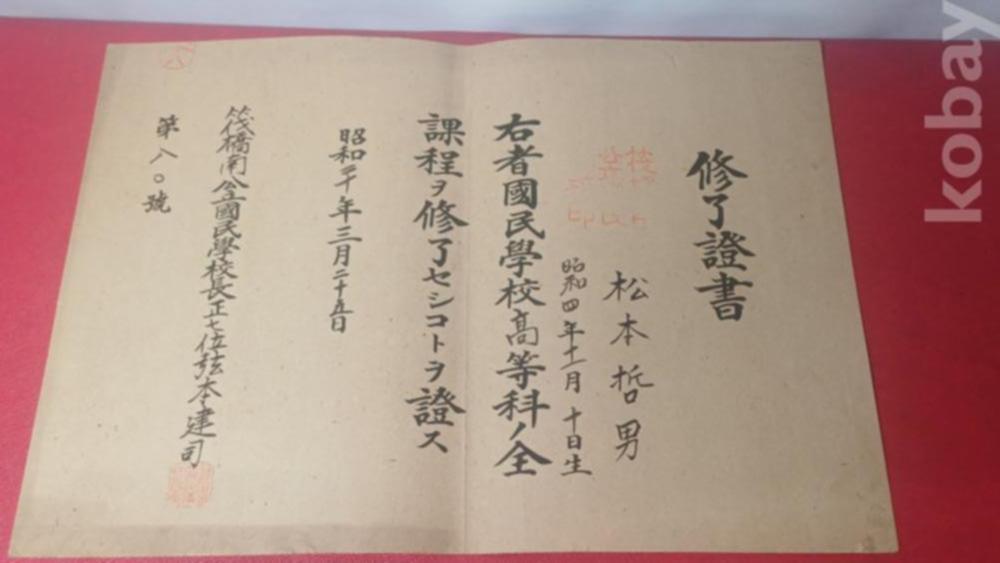 修了證書
松本哲男
昭和四年十一月十日生
右者國民學校高等科ノ全
課程ヲ修了セシコトヲ證ス
昭和二十年三月二十五日
筏橋南公立國民學校長正七位弦本建司
第八〇號
kobay